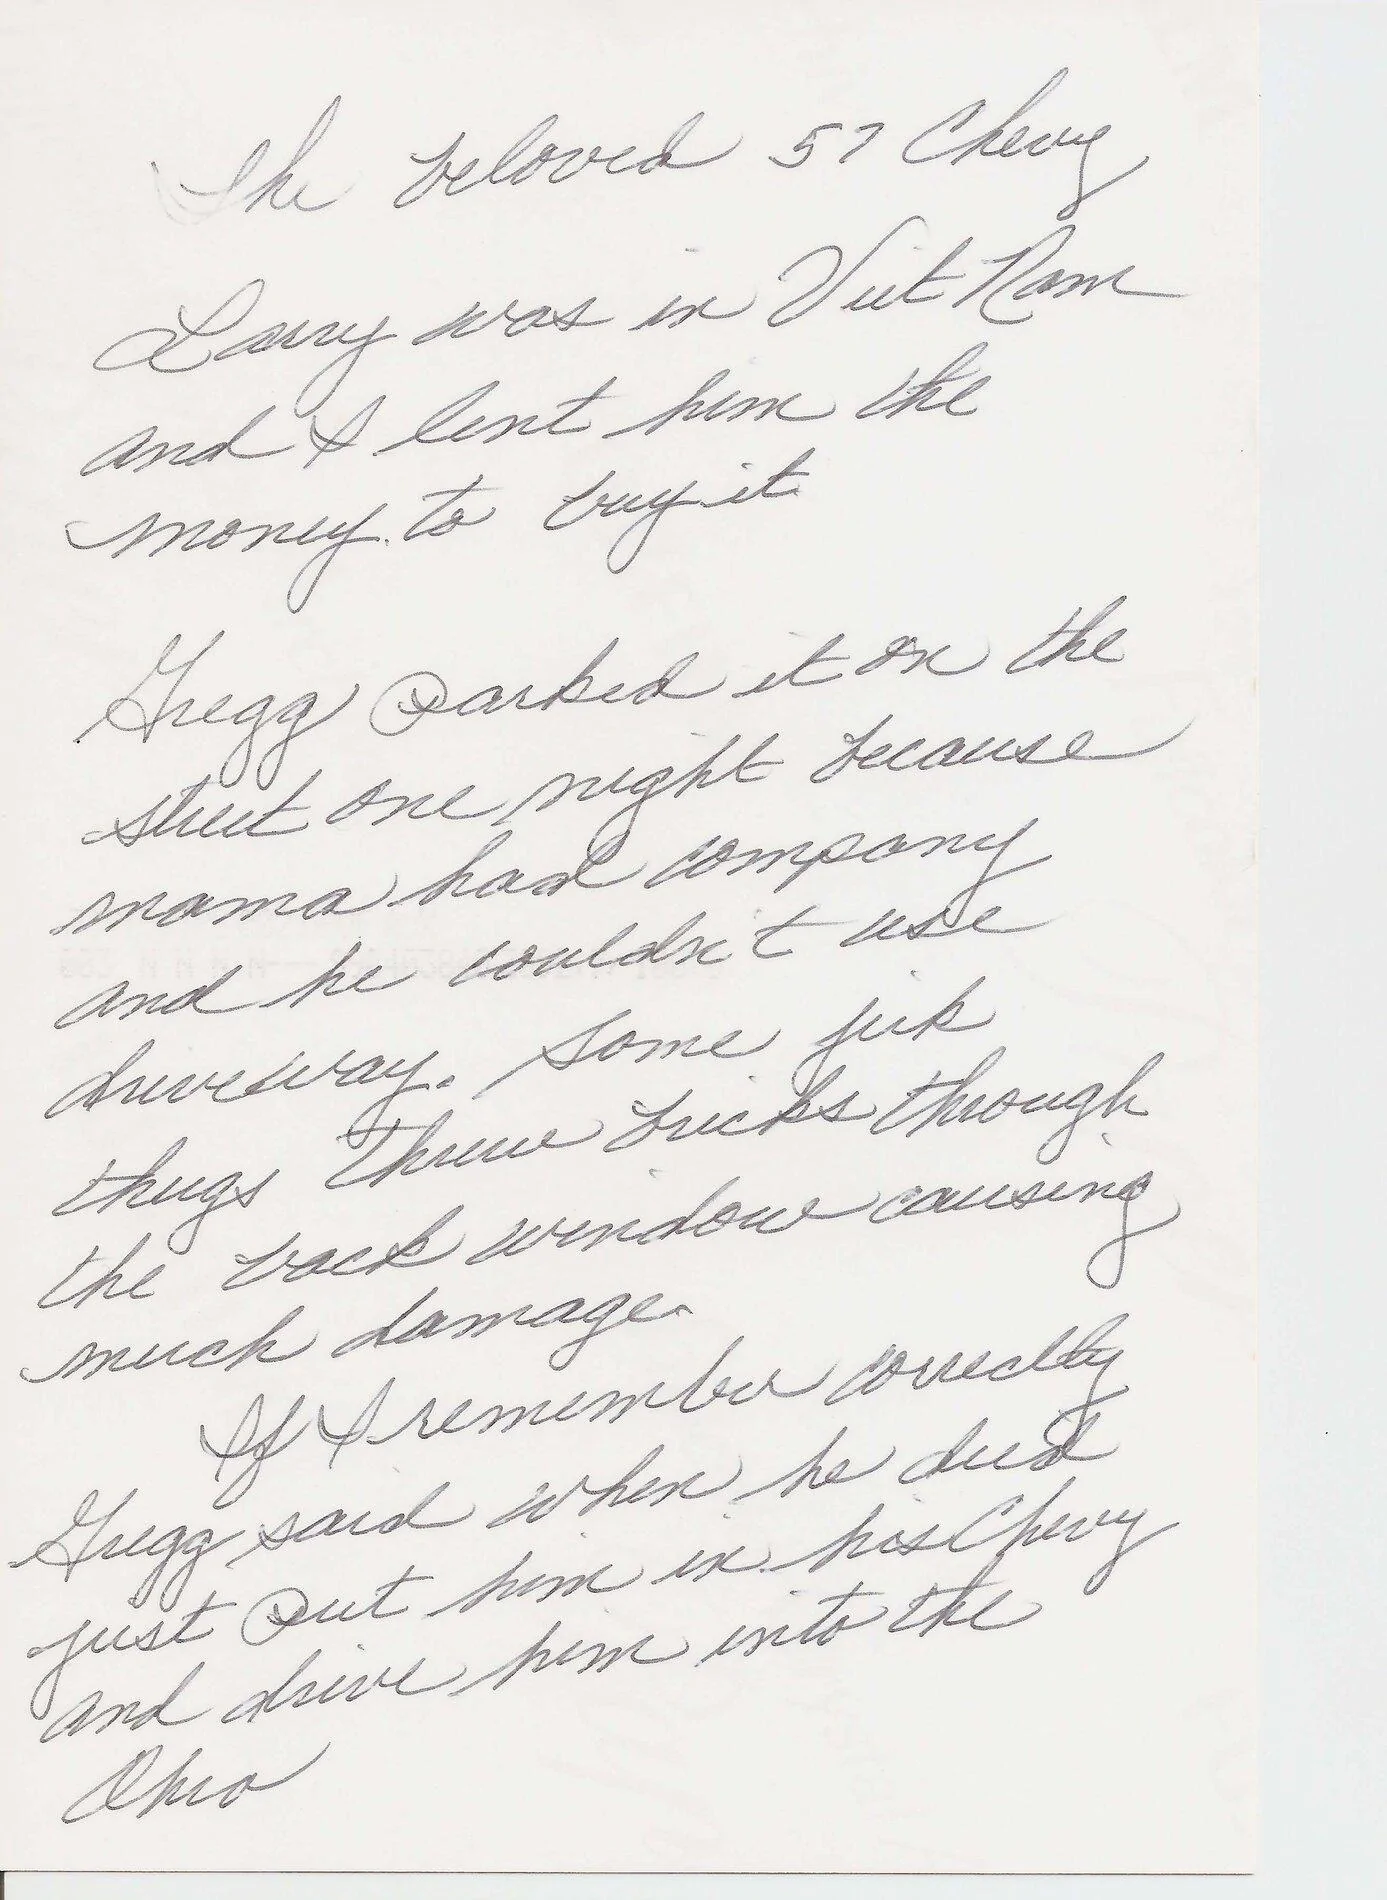 The beloved 57 Chevy
Larry was in Viet Nam
and I lent him the
money to buy it
Gregg Parked it on the
street one night because
mama had company
and he couldn't use
driveway. Some jerk
thugs threw bricks through
the back window causing
much damage.
If I remember correctly
Gregg said when he died
just Put him in his Chevy
and drive him into the
Ohio